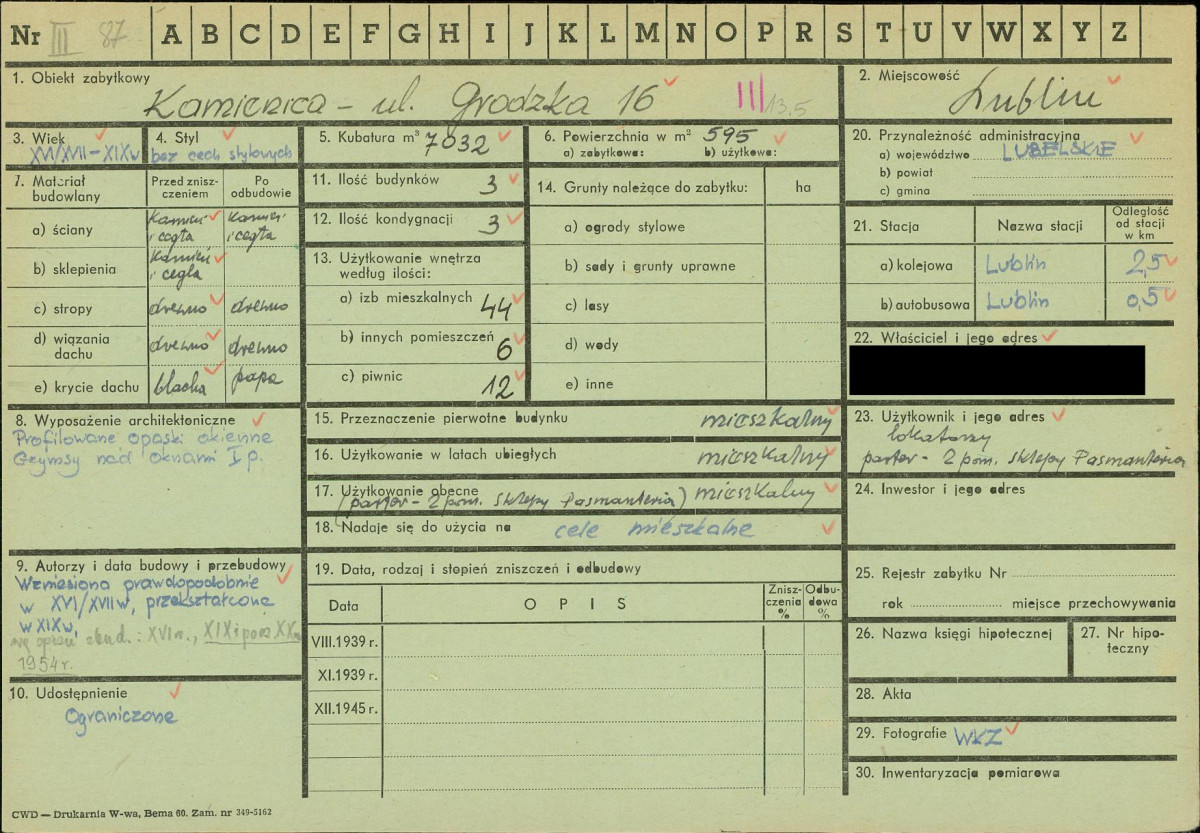 Nr III 87 A B C D E F G H I J K L M N O P R S T U V W X Y Z
1. Obiekt zabytkowy
Kamienica - ul. Grodzka 16 III 13.5
2. Miejscowość
Lublin
3. Wiek
XVI/XVII-XIXw
4. Styl
bez cech stylowych
5. Kubatura m³ 7032
6. Powierzchnia w m² 595
a) zabytkowa: b) użytkowa:
7. Materiał budowlany
Przed zniszczeniem
Po odbudowie
a) ściany kamień i cegła kamień i cegła
b) sklepienia kamień i cegła
c) stropy drewno drewno
d) wiązania dachu drewno drewno
e) krycie dachu blacha papa
8. Wyposażenie architektoniczne
Profilowane opaski okienne
Gzymsy nad oknami I p.
9. Autorzy i data budowy i przebudowy
Wzniesiona prawdopodobnie
w XVI/XVIIw, przekształcone
w XIXw,
XVI w., XIX i pocz. XX
1954 r.
10. Udostępnienie
Ograniczone
11. Ilość budynków 3
12. Ilość kondygnacji 3
13. Użytkowanie wnętrza
według ilości:
a) izb mieszkalnych 44
b) innych pomieszczeń 6
c) piwnic 12
14. Grunty należące do zabytku: ha
a) ogrody stylowe
b) sady i grunty uprawne
c) lasy
d) wody
e) inne
15. Przeznaczenie pierwotne budynku mieszkalny
16. Użytkowanie w latach ubiegłych mieszkalny
17. Użytkowanie obecne mieszkalny
(parter - 2 pom. sklepy Pasmanteria)
18. Nadaje się do użycia na cele mieszkalne
19. Data, rodzaj i stopień zniszczeń i odbudowy
Data OPIS Zniszczenia % Odbudowa %
VIII.1939 r.
XI.1939 r.
XII.1945 r.
20. Przynależność administracyjna
a) województwo LUBELSKIE
b) powiat
c) gmina
21. Stacja Nazwa stacji Odległość od stacji w km
a) kolejowa Lublin 2,5
b) autobusowa Lublin 0,5
22. Właściciel i jego adres
23. Użytkownik i jego adres
lokatorzy
parter - 2 pom. sklepy Pasmanteria
24. Inwestor i jego adres
25. Rejestr zabytku Nr
rok miejsce przechowywania
26. Nazwa księgi hipotecznej
27. Nr hipoteczny
28. Akta
29. Fotografie WKZ
30. Inwentaryzacja pomiarowa
CWD — Drukarnia W-wa, Bema 60. Zam. nr 349-5162